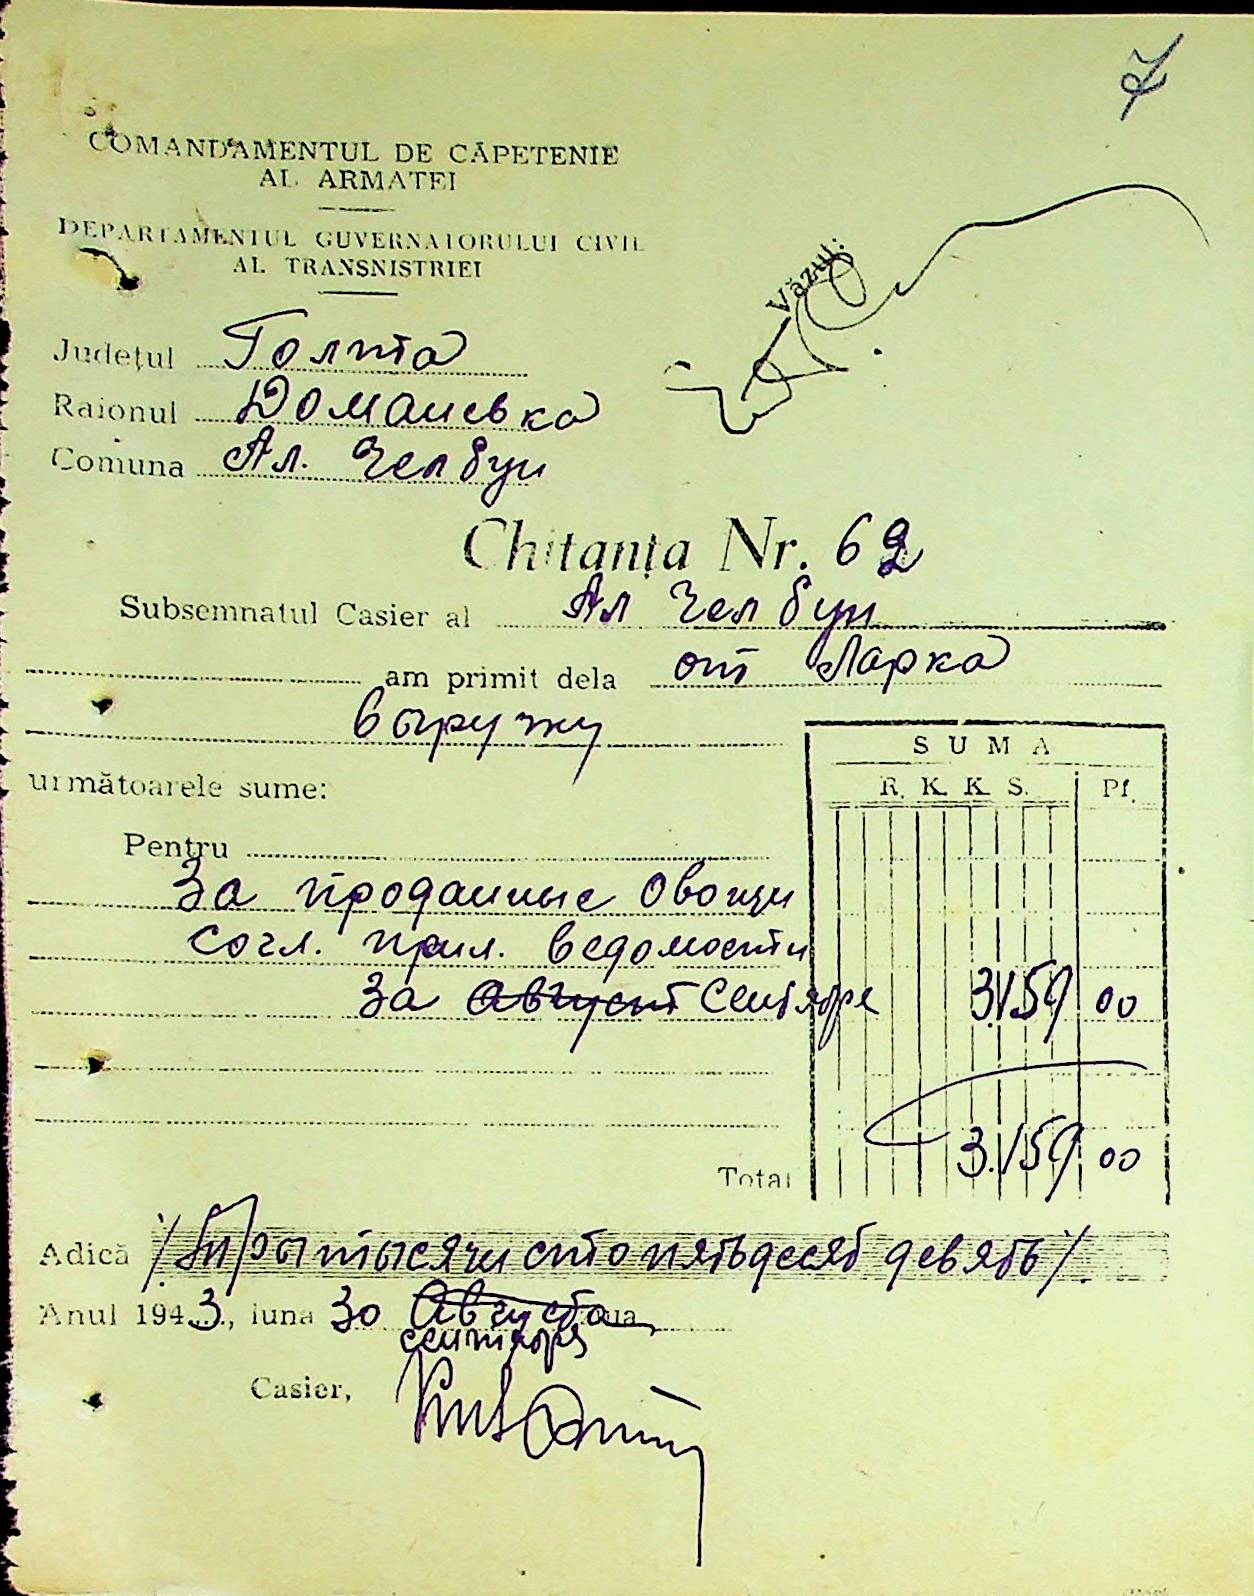 7
COMANDAMENTUL DE CĂPETENIE
AL ARMATEI
DEPARTAMENTUL GUVERNATORULUI CIVIL
AL TRANSNISTRIEI
Văzut:
Județul Голта
Raionul Доманевка
Comuna Ал. Челбун
Chitanța Nr. 62
Subsemnatul Casier al Ал Челбун
am primit dela от Ларка
выручку
SUMA
următoarele sume:
R. K. K. S. Pf.
Pentru
За проданные овощи
согл. прил. ведомости
за Август сентября 3.159 00
Total 3.159 00
Adică /Три тысячи сто пятьдесят девять/
Anul 1943, luna 30 Августа ziua
сентября
Casier,